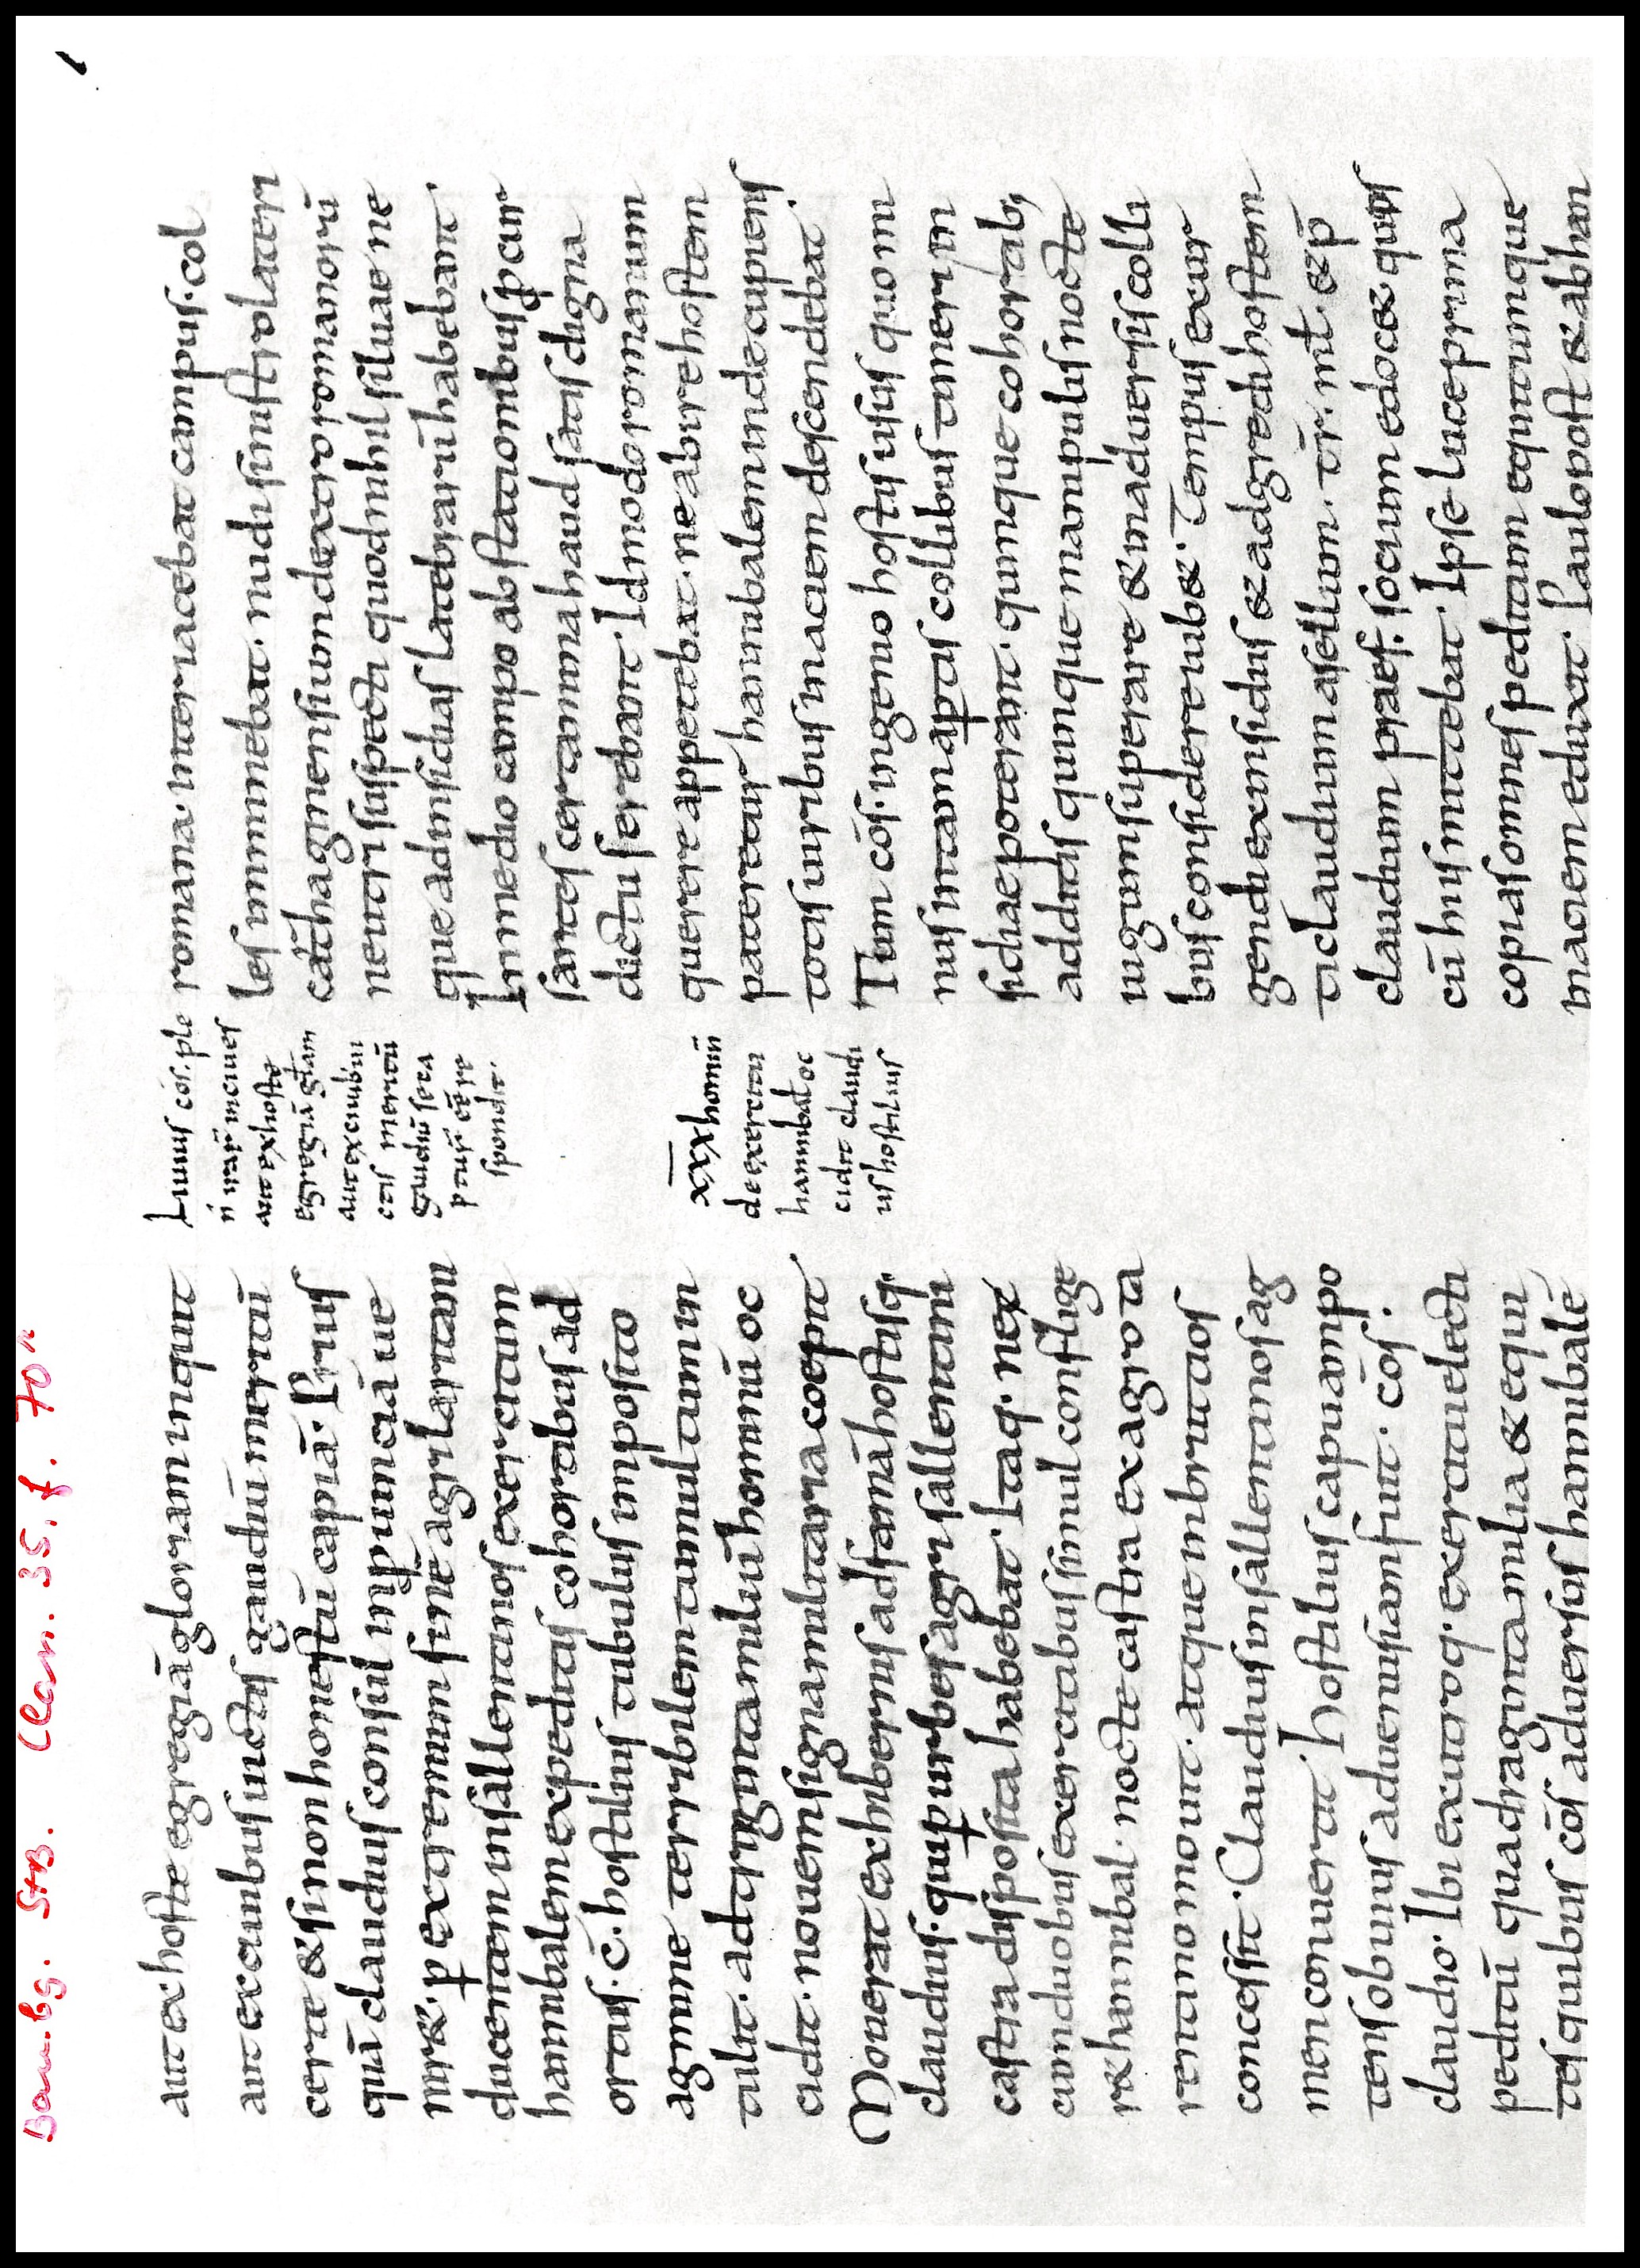 Bambg. StB. Class. 35. f. 70r
1
aut ex hoste egregiā gloriam inquit
aut ex ciuibus uictis gaudiū meritū
certe & si non honestū capiā. Prius
quā claudius consul in puinciā ue
nir&. p extremum finē agri laritani
ducentem in sallentinos exercitum
hannibalem expeditis cohortibus ad
ortus. c. hostilius tubulus imposito
agmine terribilem tumultum in
tulit. ad trigintamiliū hominū oc
cidit. nouem signa militaria coepit
Mouerat ex hibernis ad famā hostisq.
claudius. qui p urbes agri sallentini
castra disposita habebat. Itaq. nex
cum duobus exercitibus simul conflige
r& hannibal. nocte castra ex agro ta
rentino mouit. atque in bruttios
concessit. Claudius in sallentinos ag
men conuertit. hostilius capuam po
tens obuius ad uenusiam fuit. cōs.
claudio. Ibi ex utroq. exercitu electa
peditū quadraginta milia & equi
tes quibus cōs aduersus hannibalē
Liuius cōs. ple
aut ex hoste
egregiā gl̄am
aut ex ciuib; ui
ctis meritū
gaudiū fera
spondit.
XXX hominū
de exercitu
hannibal oc
cidit claudi
us hostilius
romana. interiacebat campus. col
les imminebat. nudi sinistro lateri
carthaginensium dextro romanorū
neutri suspecti quod nihil siluae ne
que ad insidias latebrarū habebant.
In medio campo ab stationibus pcur
santes certamina haud satis digna
dictu serebant. Id modo romanum
querere appetebat. ne abire hostem
pateretur hannibalem inde cupiens
totis uiribus in aciem descendebat.
Tum cōs. ingenio hostis usus quo mi
nus in tam aptis collibus timeri in
sidiae poterant. quinque cohortib;
additis quinque manipulis nocte
iugum superare & in aduersis colli
bus considere iub&. Tempus exur
gendi ex insidiis & adgrediendi hostem
ti claudium asellum. tr. mt. & p
claudium praef. socium edoc& quos
cū his mittebat. Ipse luce prima
copias omnes peditum equitumque
in aciem eduxit. Paulo post & ab han